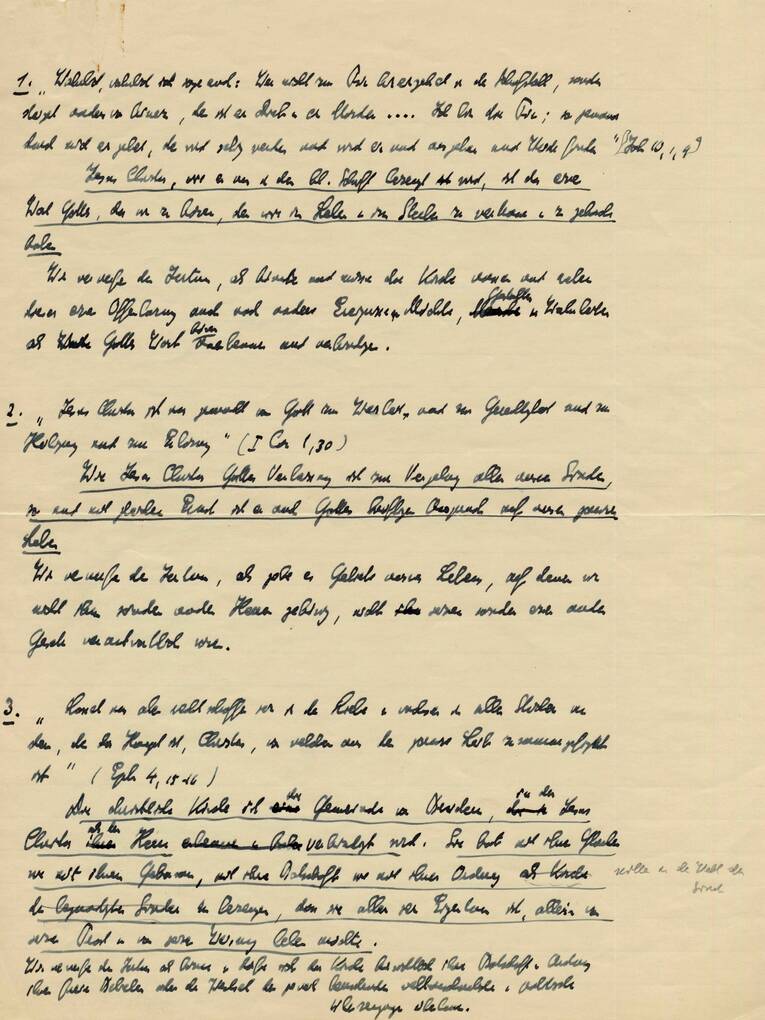 1. „Wahrlich, wahrlich ich sage euch: Wer nicht zur Tür hineingehet in die Schafstall, sondern
steiget anderswo hinein, der ist ein Dieb u. ein Mörder .... Ich bin die Tür; so jemand
durch mich eingehet, der wird selig werden und wird ein und ausgehen und Weide finden" (Joh 10, 1, 9)
Jesus Christus, wie er uns in der hl. Schrift bezeugt ist wird, ist das eine
Wort Gottes, das wir zu hören, dem wir im Leben u. im Sterben zu vertrauen u. zu gehorchen
haben
Wir verwerfen den Irrtum, als könnte und müsse die Kirche unsere und neben
dieser einen Offenbarung auch noch andere Ereignisse u. Mächte, Gestalten u. Wahrheiten
als Gottes Wort hören und verkündigen.
2. „Jesus Christus ist uns gemacht von Gott zur Weisheit, und zur Gerechtigkeit und zur
Heiligung und zur Erlösung" (I Cor 1,30)
Wie Jesus Christus Gottes Verheissung ist zur Vergebung aller unserer Sünden,
so und mit gleichem Ernst ist er auch Gottes kräftiger Anspruch auf unser ganzes
Leben
Wir verwerfen den Irrtum, als gebe es Gebiete unseres Lebens, auf denen wir
nicht ihm sondern anderen Herren gehörig, nicht seinem sondern einem anderen
Gesetz verantwortlich wären.
3. „Lasset uns aber rechtschaffen sein in der Liebe u. wachsen in allen Stücken an
dem, der das Haupt ist, Christus, von welchem aus der ganze Leib zusammengefügt
ist" (Eph 4, 15-16)
Die christliche Kirche ist die Gemeinde von Brüdern, in der Jesus
Christus als der Herr verkündigt wird. Sie hat mit ihrem Glauben
wie mit ihrem Gehorsam, mit ihrer Botschaft wie mit ihrer Ordnung als Kirche
der begnadigten Sünder zu bezeugen, dass sie allein sein Eigentum ist, allein von
seinem Trost u. von seiner Weisung leben möchte.
mitten in der Welt der
Sünde
Wir verwerfen den Irrtum als könne u. dürfe sich die Kirche hinsichtlich ihrer Botschaft u. Ordnung
ihrem freien Belieben oder dem Wechsel der jeweils herrschenden weltanschaulichen u. politischen
Überzeugungen überlassen.